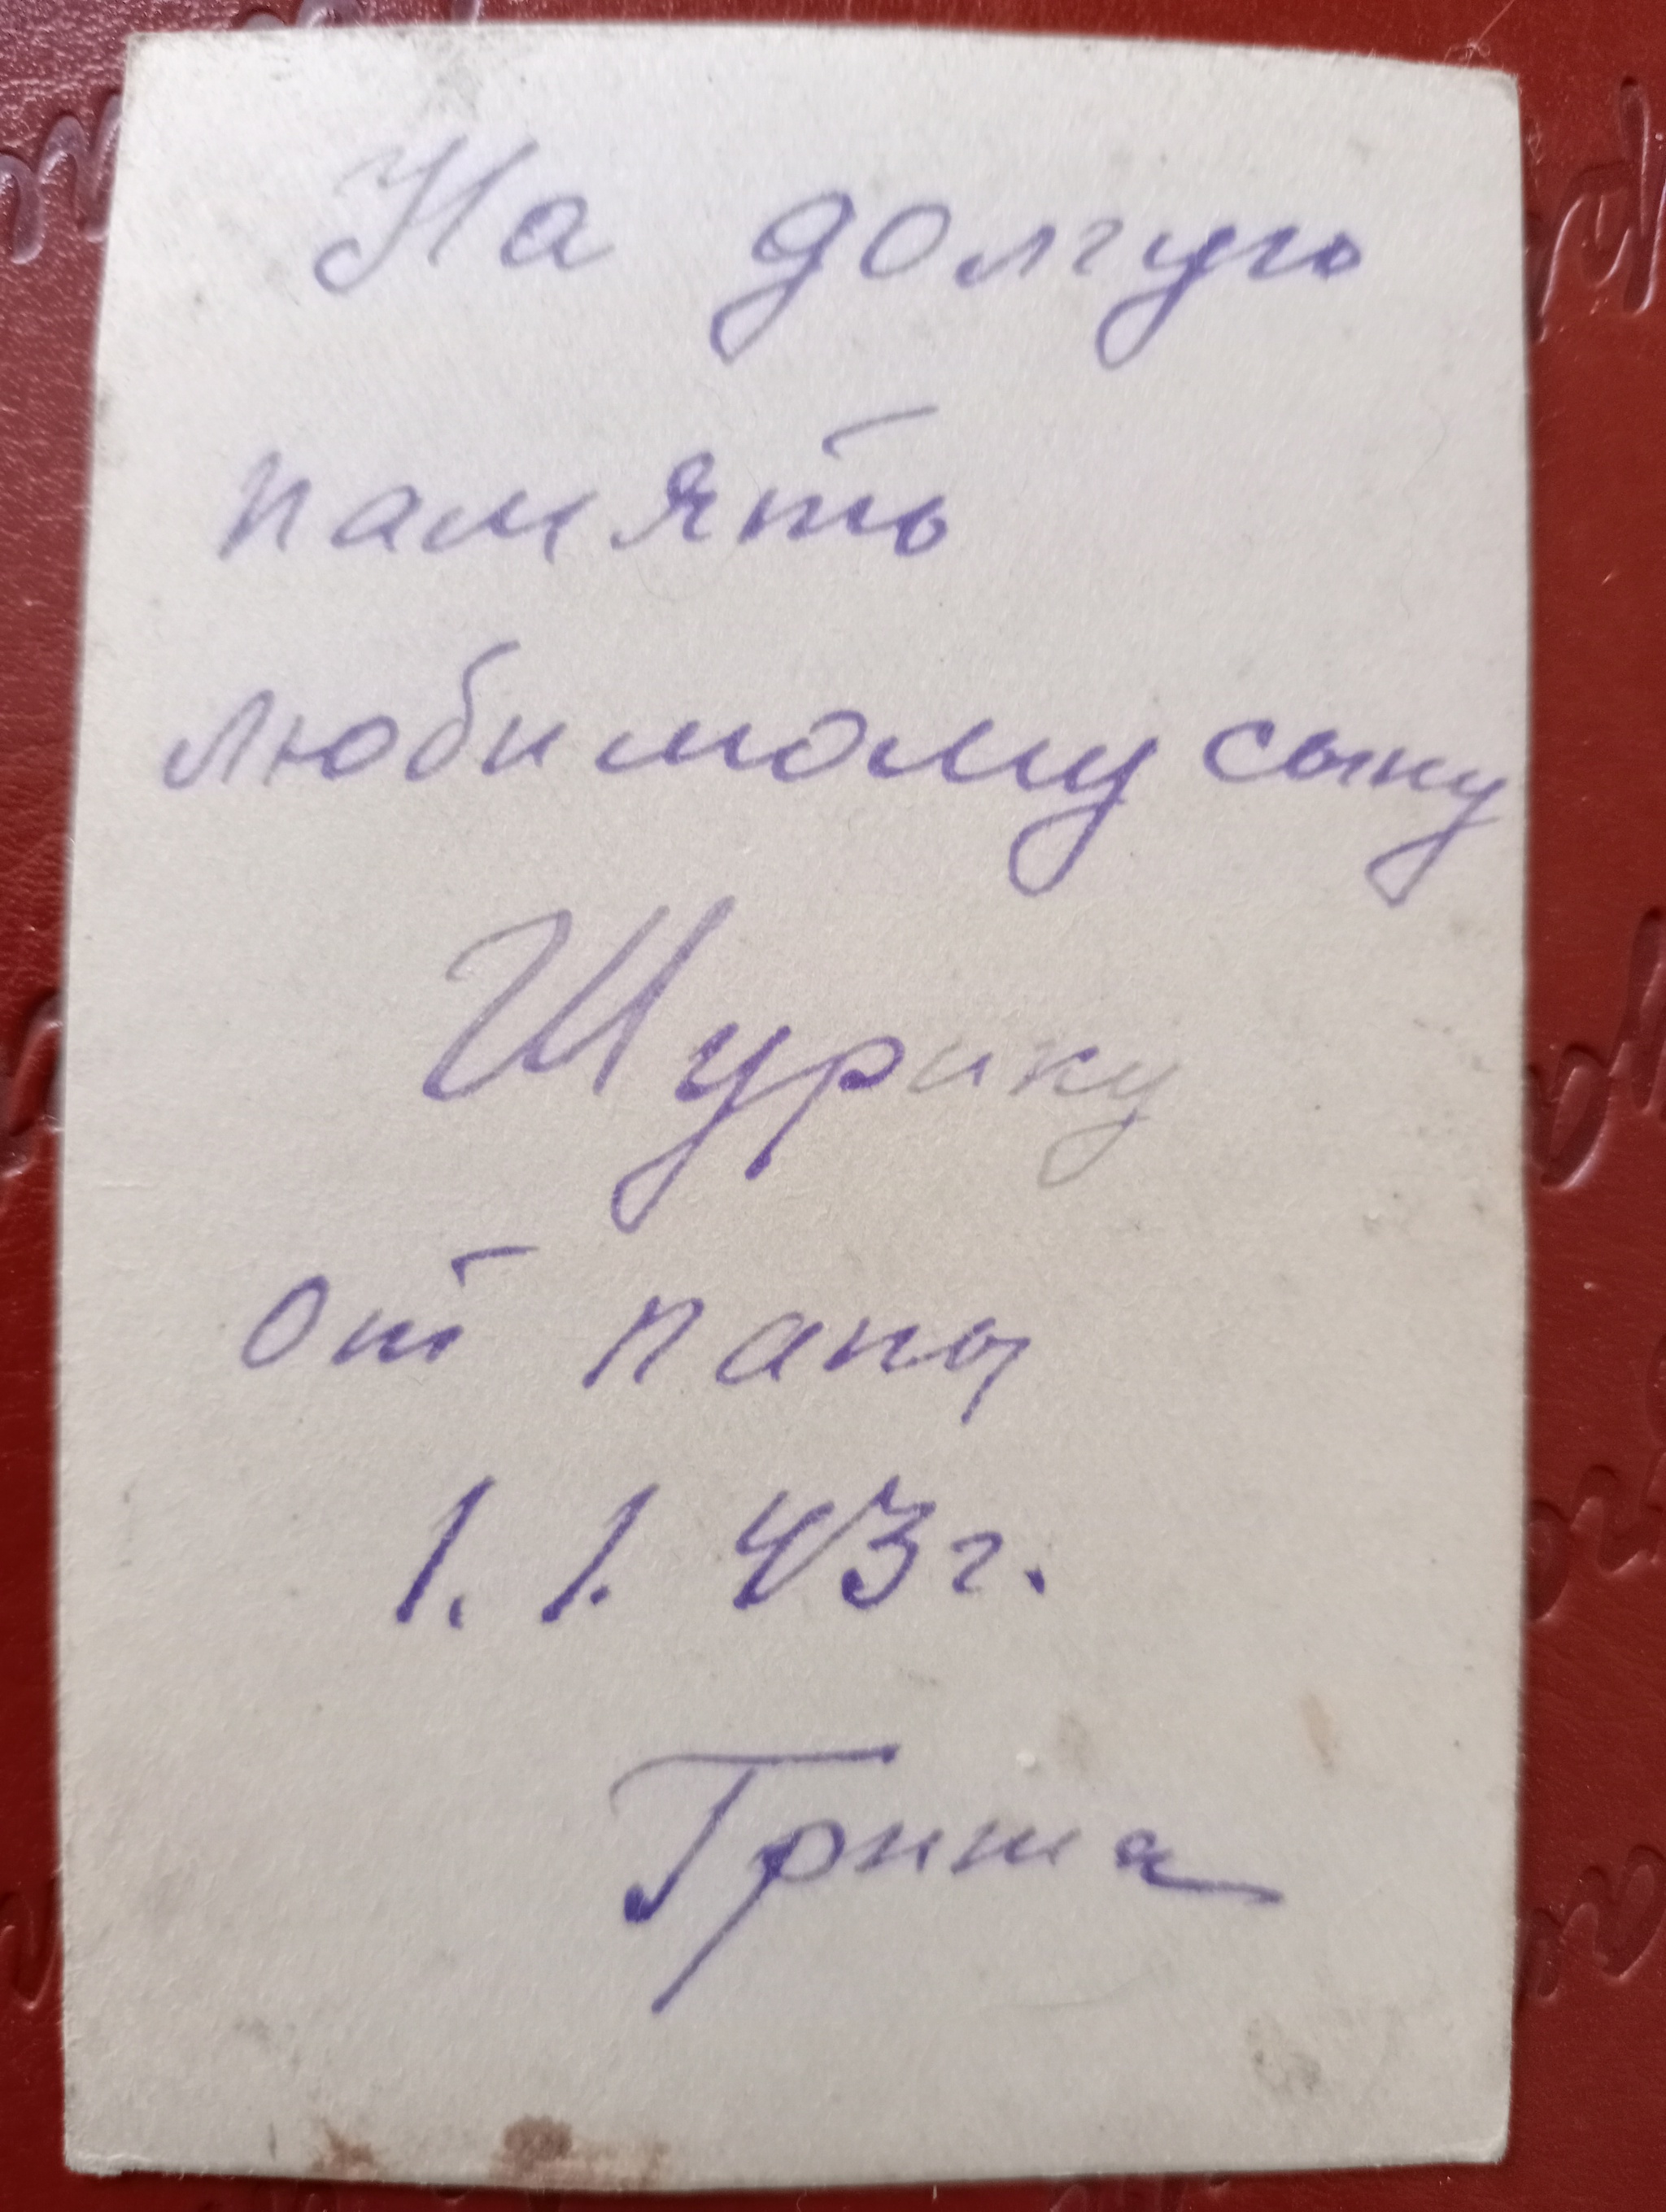 На долгую
память
любимому сыну
Шурику
от папы
1. 1. 43 г.
Гриша